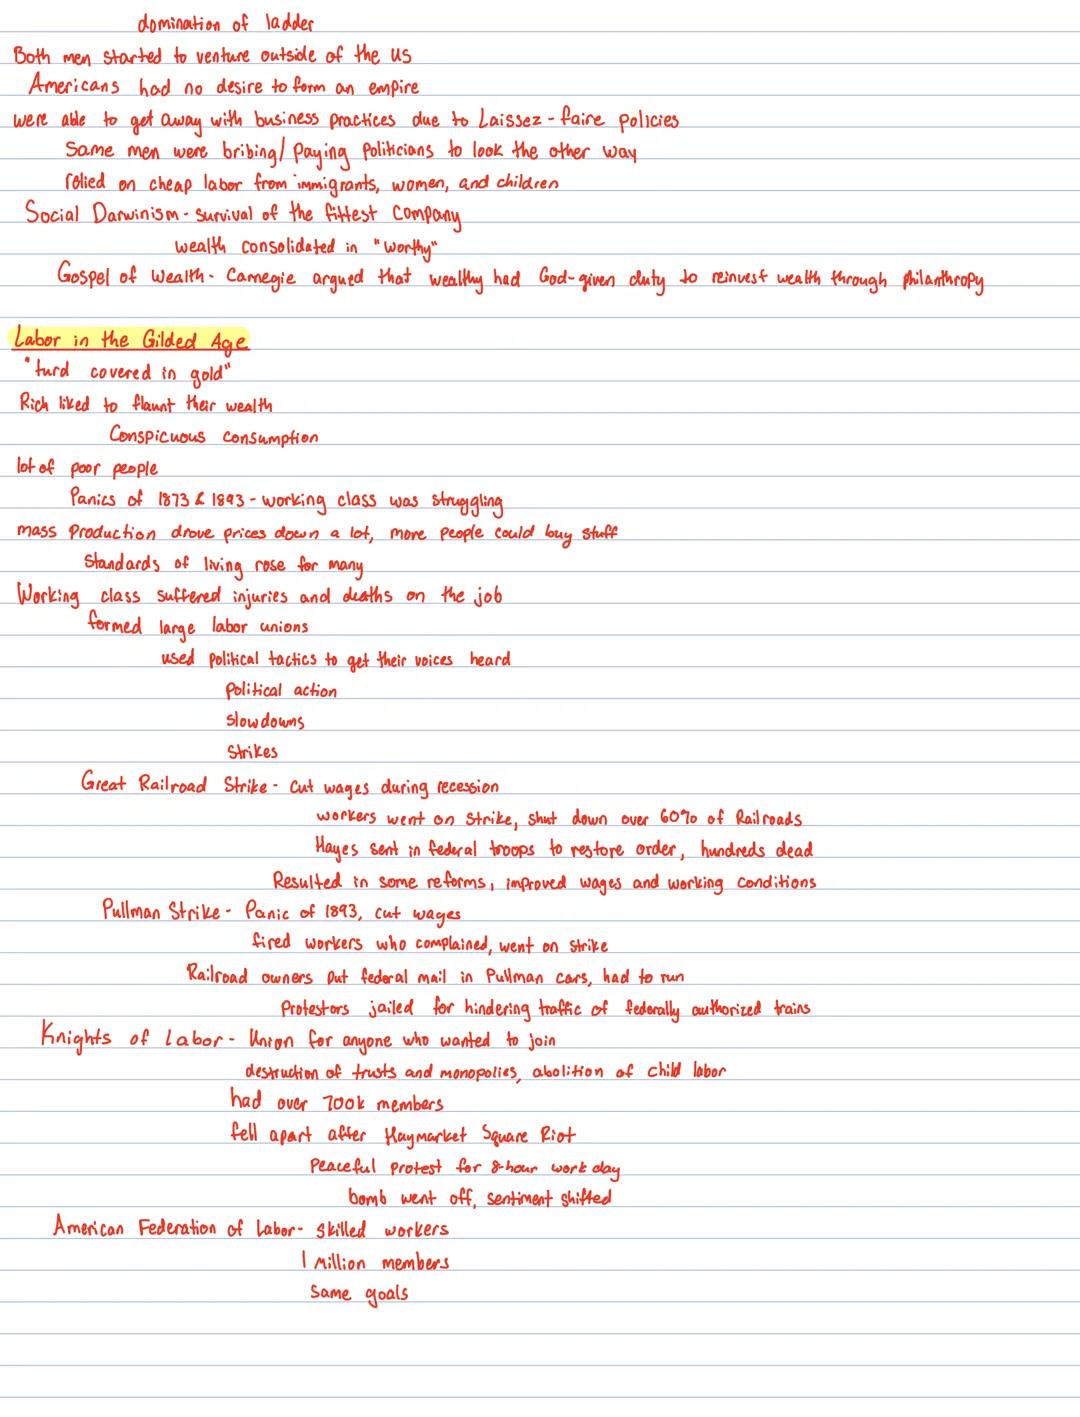 domination of ladder
Both men started to venture outside of the US
Americans had no desire to form an empire
were able to get away with business practices due to Laissez-faire policies
Same men were bribing/paying politicians to look the other way
relied on cheap labor from immigrants, women, and children
Social Darwinism - survival of the fittest company
wealth consolidated in "worthy"
Gospel of Wealth - Carnegie argued that wealthy had God-given duty to reinvest wealth through philanthropy
Labor in the Gilded Age
"turd covered in gold"
Rich liked to flaunt their wealth
Conspicuous consumption
lot of poor people
Panics of 1873 & 1893 - working class was struggling
mass production drove prices down a lot, more people could buy stuff
Standards of living rose for many
Working class suffered injuries and deaths on the job
formed large labor unions
used political tactics to get their voices heard
Political action
slowdowns
Strikes
Great Railroad Strike - cut wages during recession
workers went on strike, shut down over 60% of Railroads
Hayes sent in federal troops to restore order, hundreds dead
Resulted in some reforms, improved wages and working conditions
Pullman Strike - Panic of 1893, cut wages
fired workers who complained, went on strike
Railroad owners put federal mail in Pullman cars, had to run
Protestors jailed for hindering traffic of federally authorized trains
Knights of Labor - Union for anyone who wanted to join
destruction of trusts and monopolies, abolition of child labor
had over 700k members
fell apart after Haymarket Square Riot
Peaceful protest for 8-hour work day
bomb went off, sentiment shifted
American Federation of Labor - skilled workers
1 Million members
Same goals